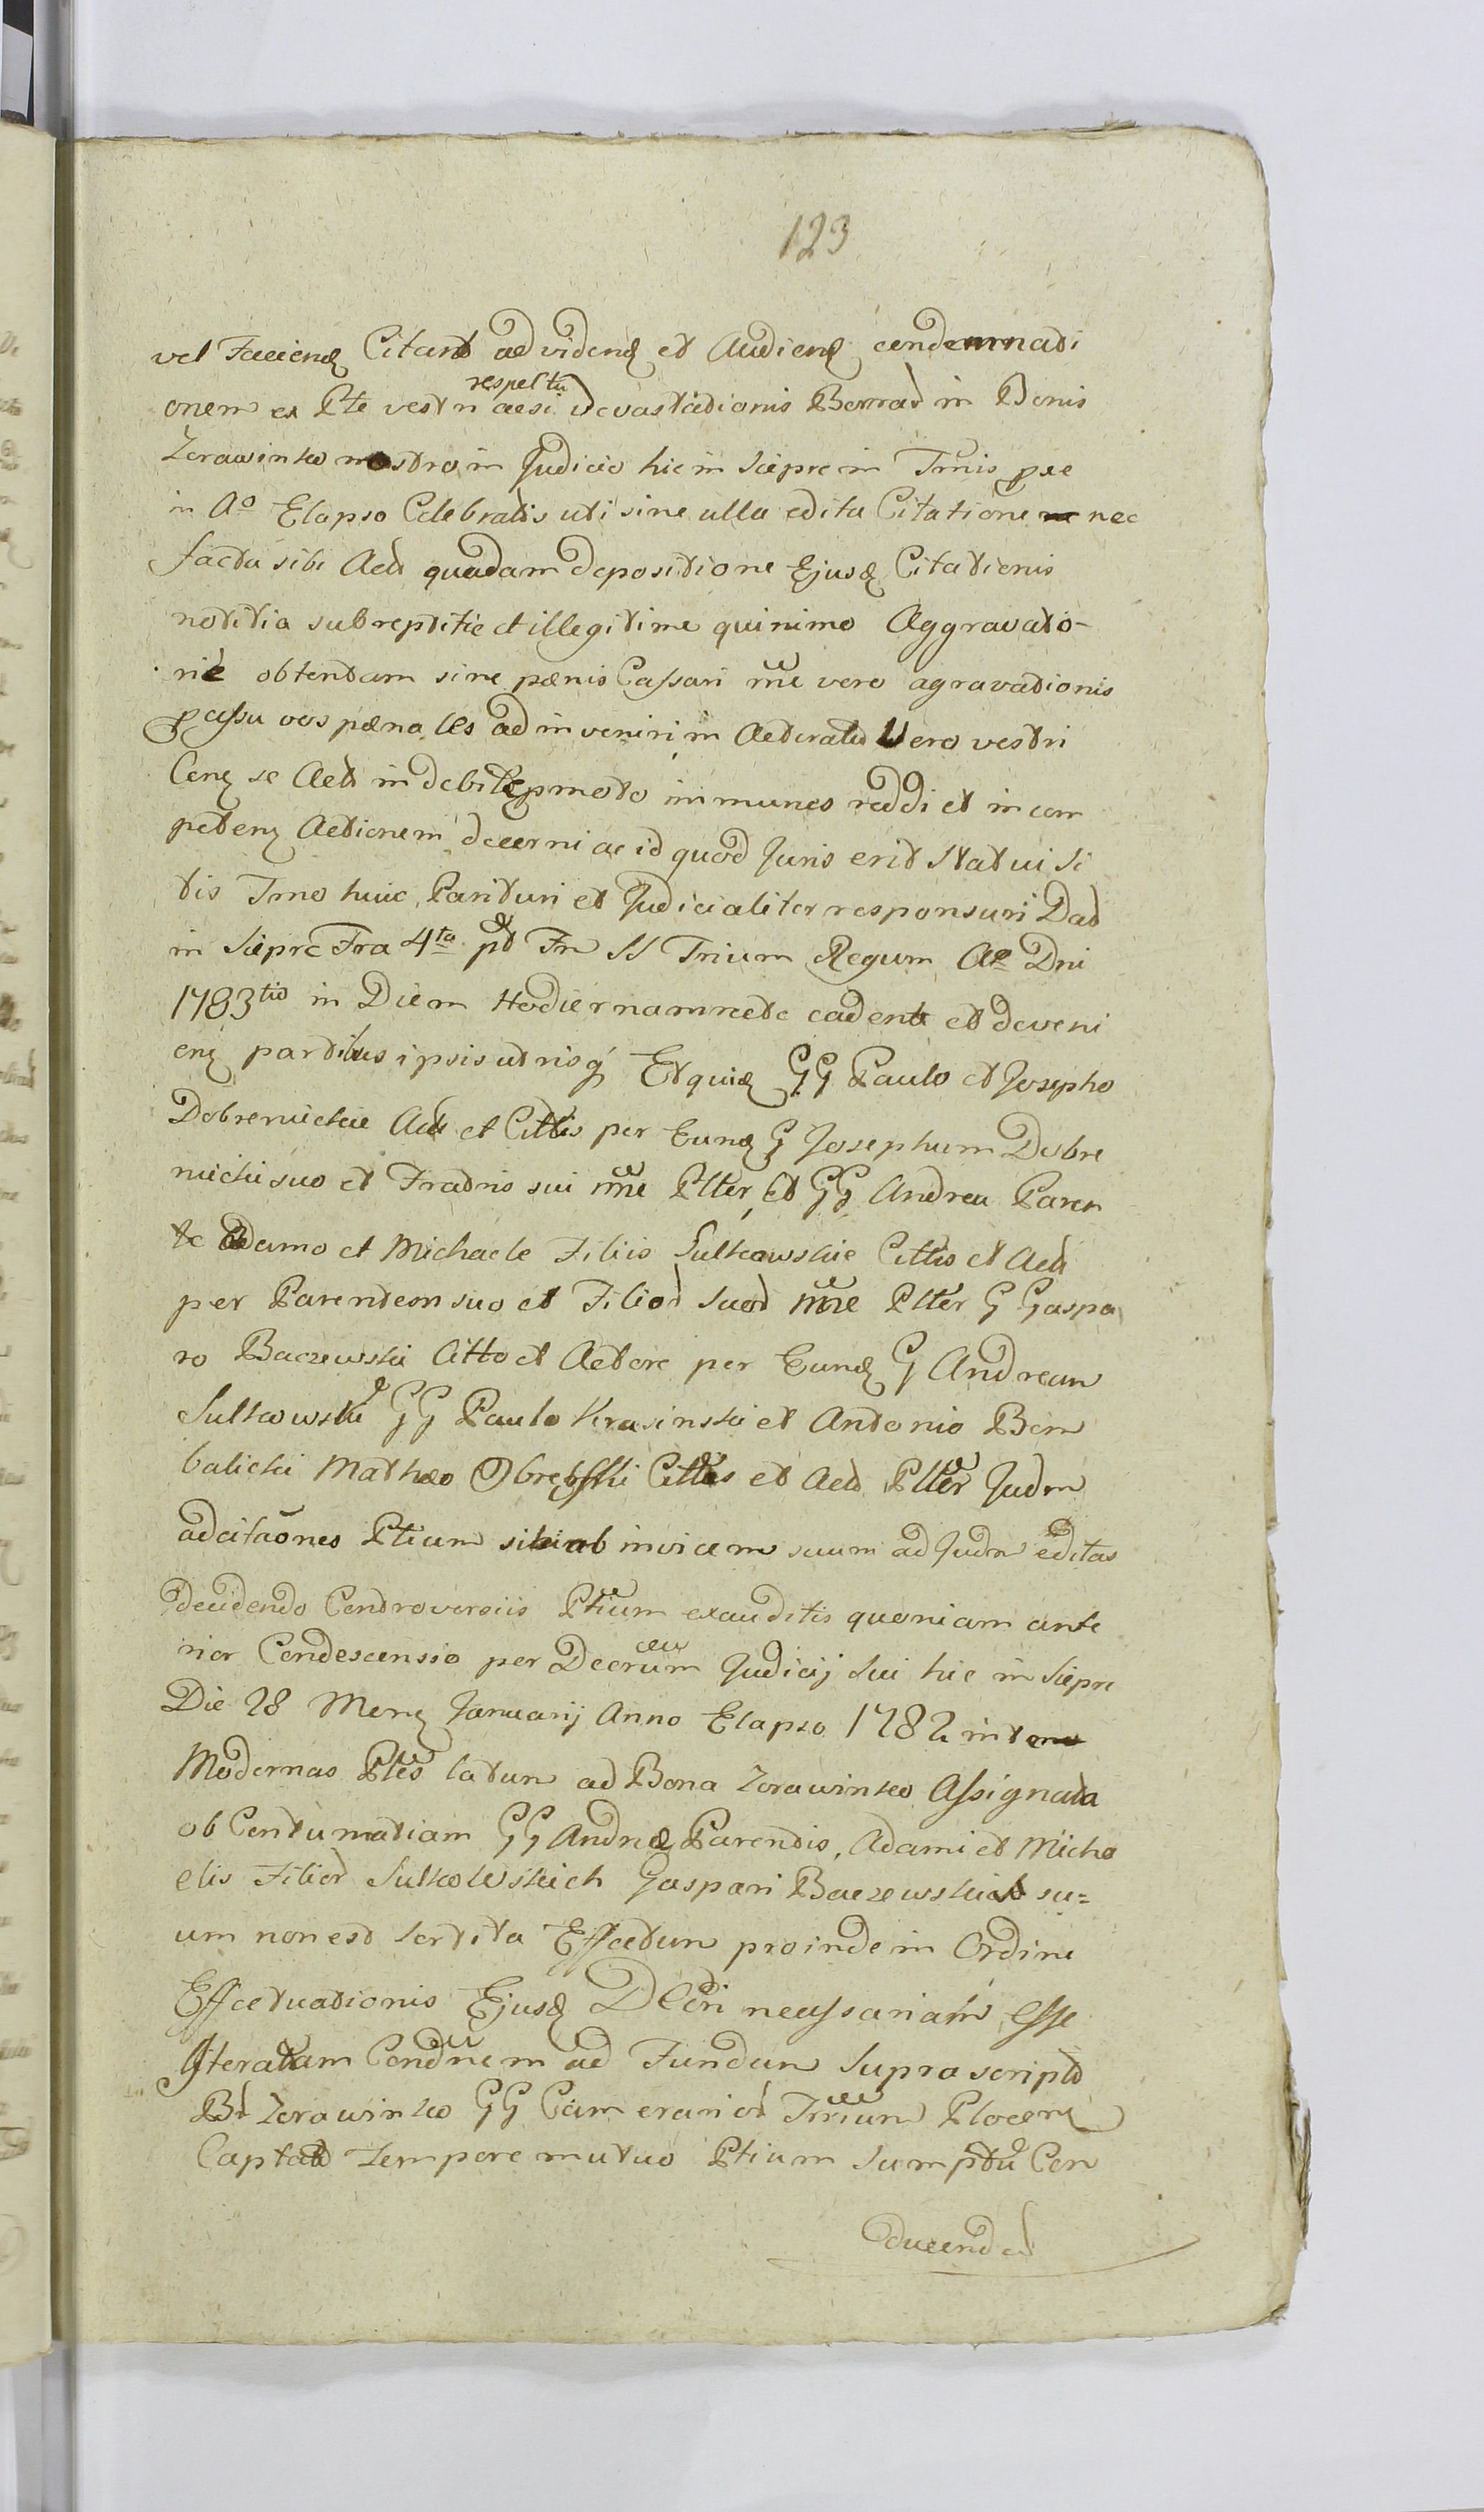 123
vel Faciend Citant ad videnđ et Audienđ condemnati
onem ex Pte vestri respectu devastationis Borrar in Bonis
Zorawinko nostro in Judicio hic in Sieprc in Tmis
in Ao Elapso Celebratis uti sine ulla edita Citatione nec
facta sibi Act quadam depositione Ejusđ Citationis
notitia subreptitie et illegitime quinimo Aggravato-
rié obtentam sine pænis Cassari vero agravationis
passu vos pæna les ad inveniri in vero vestri
Act in debite pmoto immunes reddi et in com
petenz Actionem decerni ac id quod Juris erit Statui Si
tis Tmo huic Parituri et Judicialiter responsuri Dat
in Sieprc Fra 4ta pt Fn SS Trium Regum Ao Dni
1783tio in Diem Hodiernam recte cadente et deveni
enz partibus ipsis utrisq Et quiđ GG Paulo et Josepho
Dobrenieckie Act et Cittis per Eunđ G Josephum Dobre
niecki suo et Fratris sui nne Plter, Et GG Andrea Paren
te Adamo et Michaele Filiis Sulkowskie Cittis et Act
per Parentem suo et Filior Suor nne Plter G Gaspa
ro Baczewski Citto et Actore per Eunđ G Andream
Sulkowski GG Paulo Krasinski et Antonio Bem
balicki Mathæo Obrębski Cittis et Act Plter Judm
adcitaones Ptium sibi ab invicem suum ad Judm editas
decidendo Controversiis Ptium exauditis quoniam ante
rior Condescensio per Decrum Judicij Sui hic in Sieprc
Die 28 Menz Januarij Anno Elapso 1782 inter
Modernas Ptes latum ad Bona Zorawinko Assignata
ob Contumatiam GG Andreæ Parentis, Adami et Micha
elis Filior Sulkowskich Gaspari Baczewski su=
um non est Sortita Effectum proinde in Ordine
Effectuationis Ejusđ Decri necessariam esse
Iteratam Condnem ad Fundum Suprascript
Br Zorawinko GG Camerarior Trrium Plocenz
Captato Tempore mutuo Ptium Sumptu Con
ducend